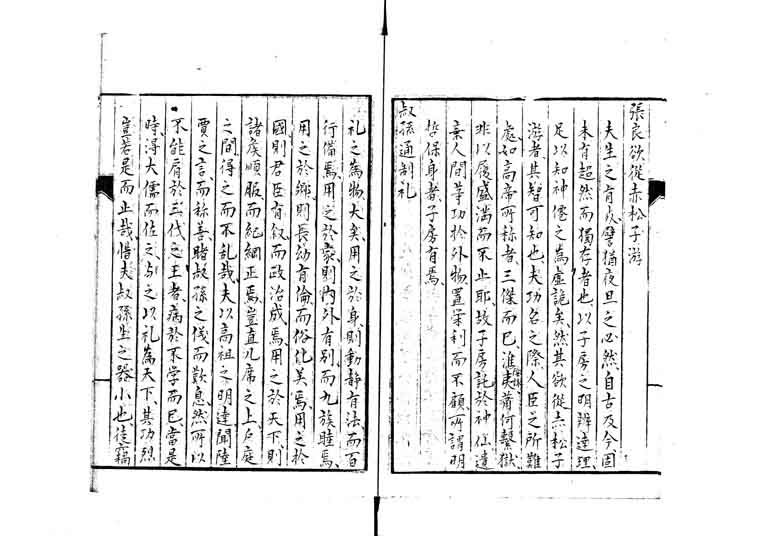 張良欲從赤松子游
夫生之有死譬猶夜旦之必然自古及今固
未有超然而獨存者也以子房之明辨達理
足以知神僊之為虛詭矣然其欲從赤松子
游者其智可知也夫功名之際人臣之所難
處如高帝所稱者三傑而已淮陰誅夷蕭何繫獄
非以履盛滿而不止耶故子房託於神仙遺
棄人間等功於外物置榮利而不顧所謂明
哲保身者子房有焉
叔孫通制礼
礼之為物大矣用之於身則動静有法而百
行備焉用之於家則內外有別而九族睦焉
用之於鄉則長幼有倫而俗化美焉用之於
國則君臣有叙而政治成焉用之於天下則
諸侯順服而紀綱正焉豈直几席之上户庭
之間得之而不乱哉夫以高祖之明達聞陸
賈之言而稱善睹叔孫之儀而歎息然所以
不能肩於三代之王者病於不学而已當是
時得大儒而佐之与之以礼為天下其功烈
豈若是而止哉惜夫叔孫生之器小也徒竊